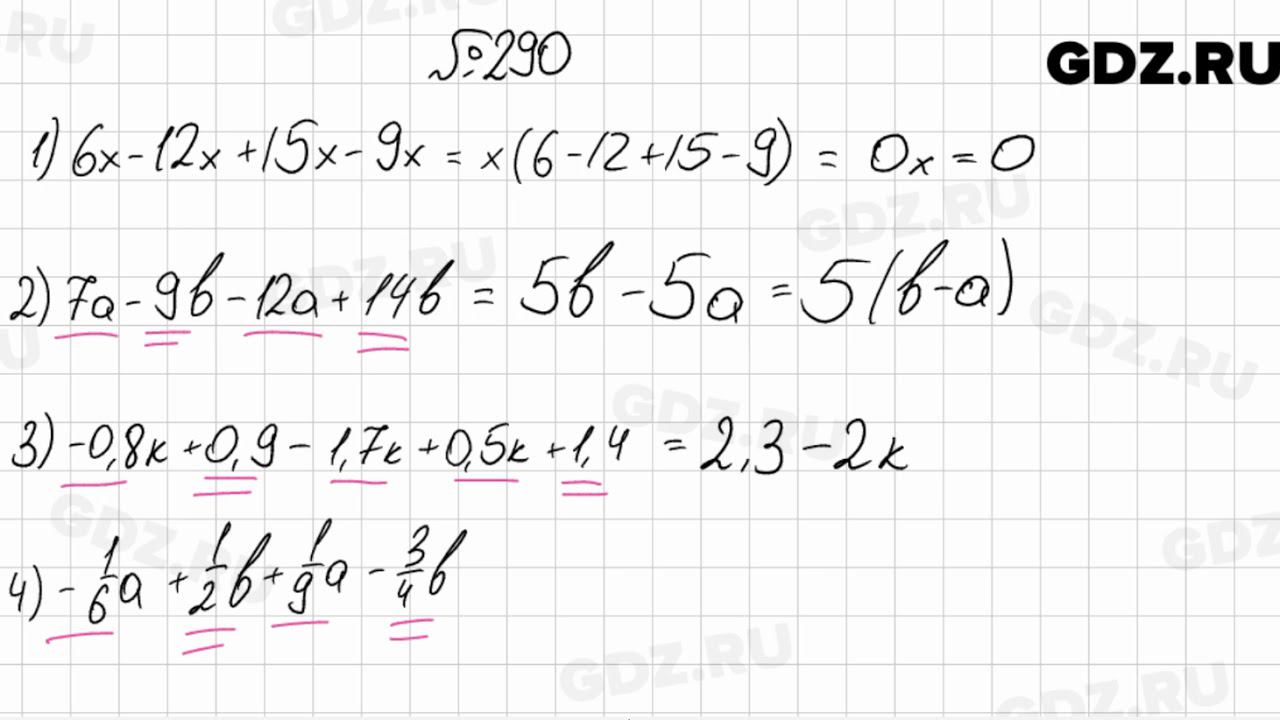 №290
GDZ.RU
1) 6x - 12x + 15x - 9x = x(6 - 12 + 15 - 9) = 0x = 0
2) 7a - 9b - 12a + 14b = 5b - 5a = 5(b-a)
3) -0,8к + 0,9 - 1,7к + 0,5к + 1,4 = 2,3 - 2к
4) - 1/6 a + 1/2 b + 1/9 a - 3/4 b